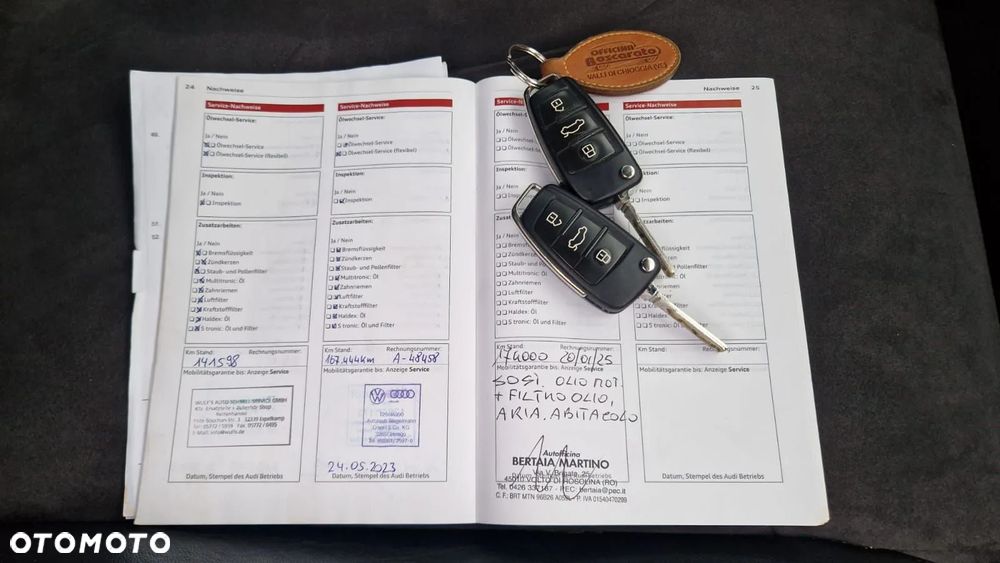 24 Nachweise
Service-Nachweise
Ölwechsel-Service:
Ja / Nein
Ölwechsel-Service
Ölwechsel-Service (flexibel)
Inspektion:
Ja / Nein
Inspektion
Zusatzarbeiten:
Ja / Nein
Bremsflüssigkeit
Zündkerzen
Staub- und Pollenfilter
Multitronic: Öl
Zahnriemen
Luftfilter
Kraftstofffilter
Haldex: Öl
S tronic: Öl und Filter
Km Stand: Rechnungsnummer:
141598
Mobilitätsgarantie bis: Anzeige Service
WULF'S AUTO SCHNELL SERVICE GMBH
Datum, Stempel des Audi Betriebs
Service-Nachweise
Ölwechsel-Service:
Ja / Nein
Ölwechsel-Service
Ölwechsel-Service (flexibel)
Inspektion:
Ja / Nein
Inspektion
Zusatzarbeiten:
Ja / Nein
Bremsflüssigkeit
Zündkerzen
Staub- und Pollenfilter
Multitronic: Öl
Zahnriemen
Luftfilter
Kraftstofffilter
Haldex: Öl
S tronic: Öl und Filter
Km Stand: Rechnungsnummer:
167.444km A-48458
Mobilitätsgarantie bis: Anzeige Service
24.05.2023
Datum, Stempel des Audi Betriebs
Nachweise 25
Service-
Ölwechsel-
Ja / Nein
Ölwechse
Ölwechse
Inspektion
Ja / Nein
Zusatz
Ja / Nein
Bremsflü
Zündkerzen
Staub- und
Multitronic: Öl
Zahnriemen
Luftfilter
Kraftstofffilter
Haldex: Öl
S tronic: Öl und Filter
Km Stand: Rechnungsnummer:
174000 20/01/25
Mobilitätsgarantie bis: Anzeige Service
SOST. OLIO MOT.
+ FILTRO OLIO,
ARIA, ABITACOLO
Autofficina
BERTAIA MARTINO
Via V. Brigate, 25
45010 VOLTO DI ROSOLINA (RO)
Tel. 0426 337187 - PEC: bertaia@pec.it
C.F.: BRT MTN 96B26 A059L - P. IVA 01540470299
Service-Nachweise
Ölwechsel-Service:
Ölwechsel-Service
Ölwechsel-Service (flexibel)
Inspektion
arbeiten:
Rechnungsnummer:
Mobilitätsgarantie bis: Anzeige Service
Datum, Stempel des Audi Betriebs
OFFICINA
Boscarato
VALLI DI CHIOGGIA (VE)
OTOMOTO